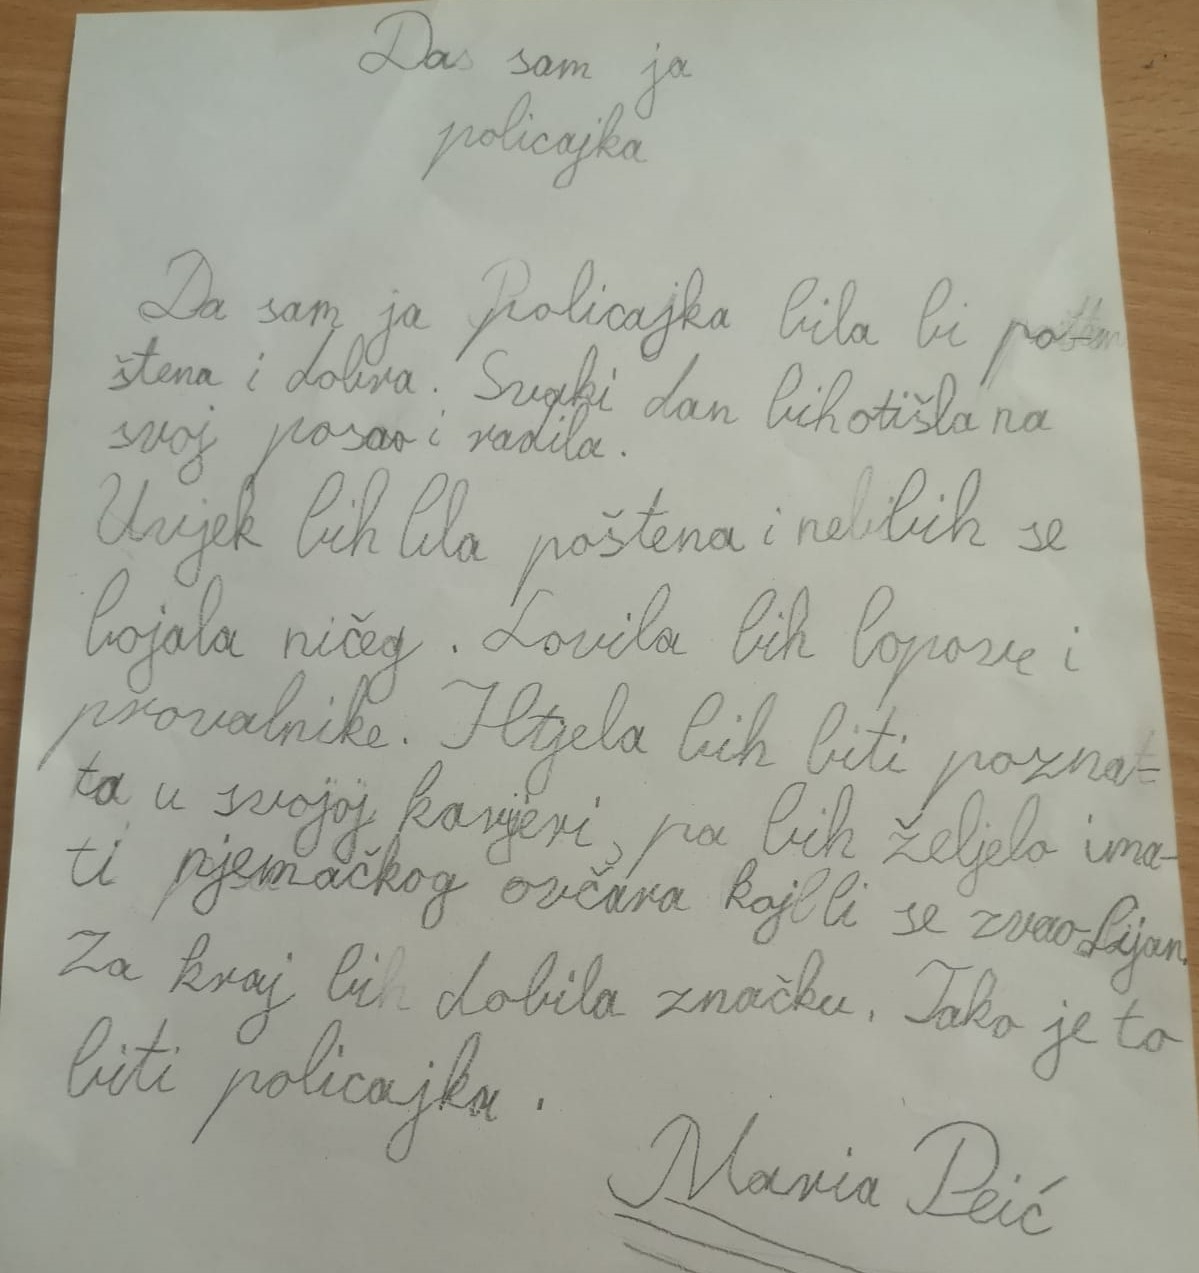 Da sam ja
policajka
Da sam ja Policajka bila bi po-
štena i dobra. Svaki dan bih otišla na
svoj posao i radila.
Uvijek bih bila poštena i nebih se
bojala ničeg. Lovila bih lopove i
provalnike. Htjela bih biti pozna-
ta u svojoj karijeri, pa bih željela ima-
ti njemačkog ovčara koji bi se zvao Lijan.
Za kraj bih dobila značku. Tako je to
biti policajka.
Maria Peić